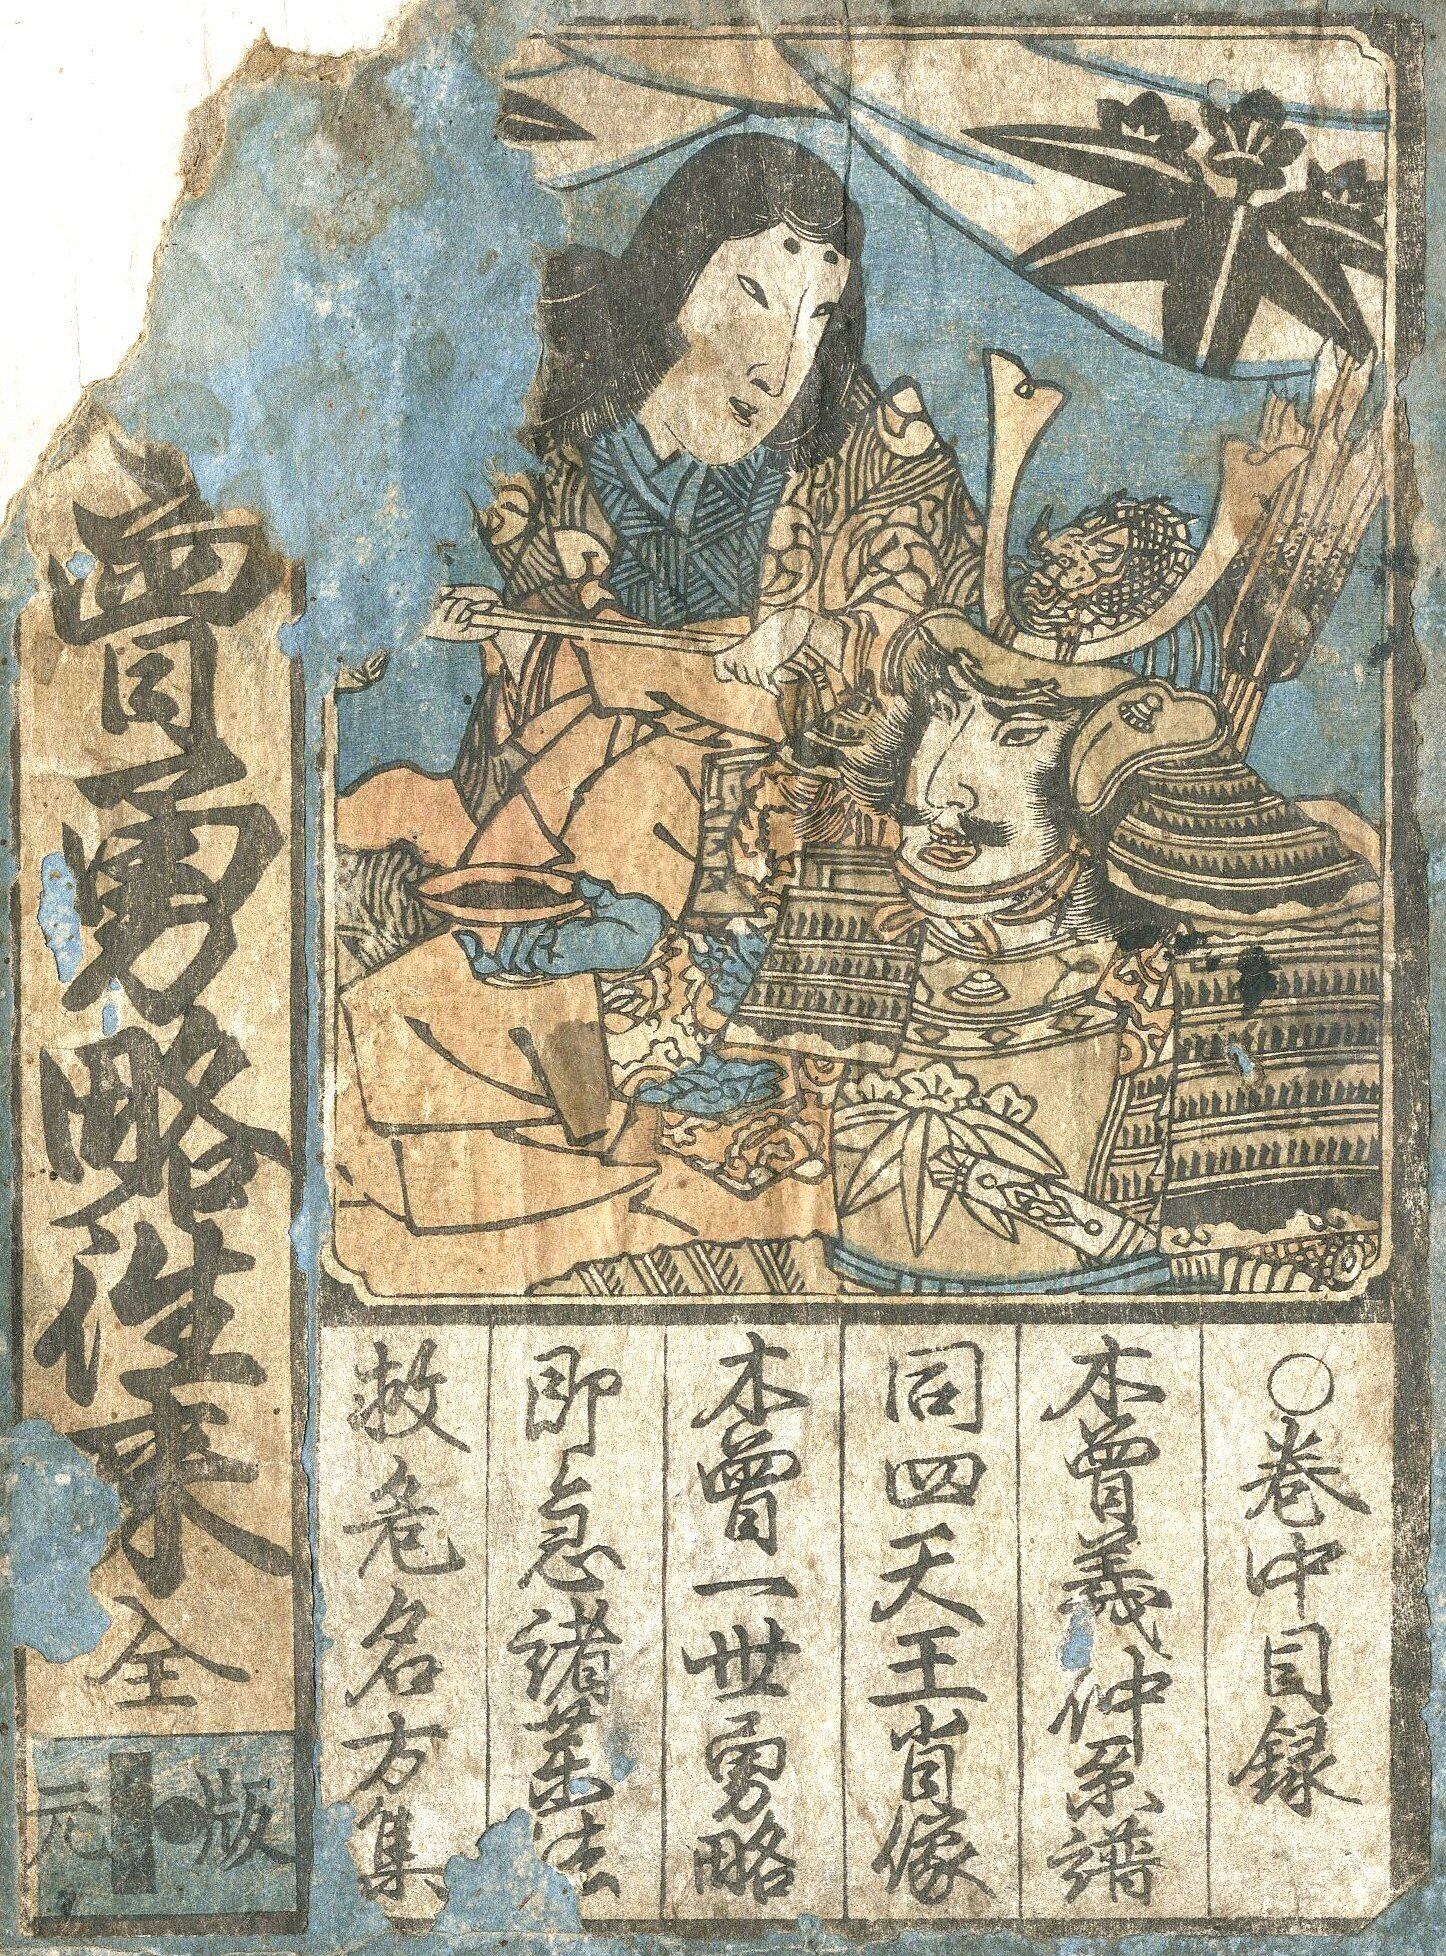 〇巻中目録
木曽義仲系譜
同四天王肖像
木曽一世勇略
即急諸薬法
救危名方集
曽勇略往来
全
元
版